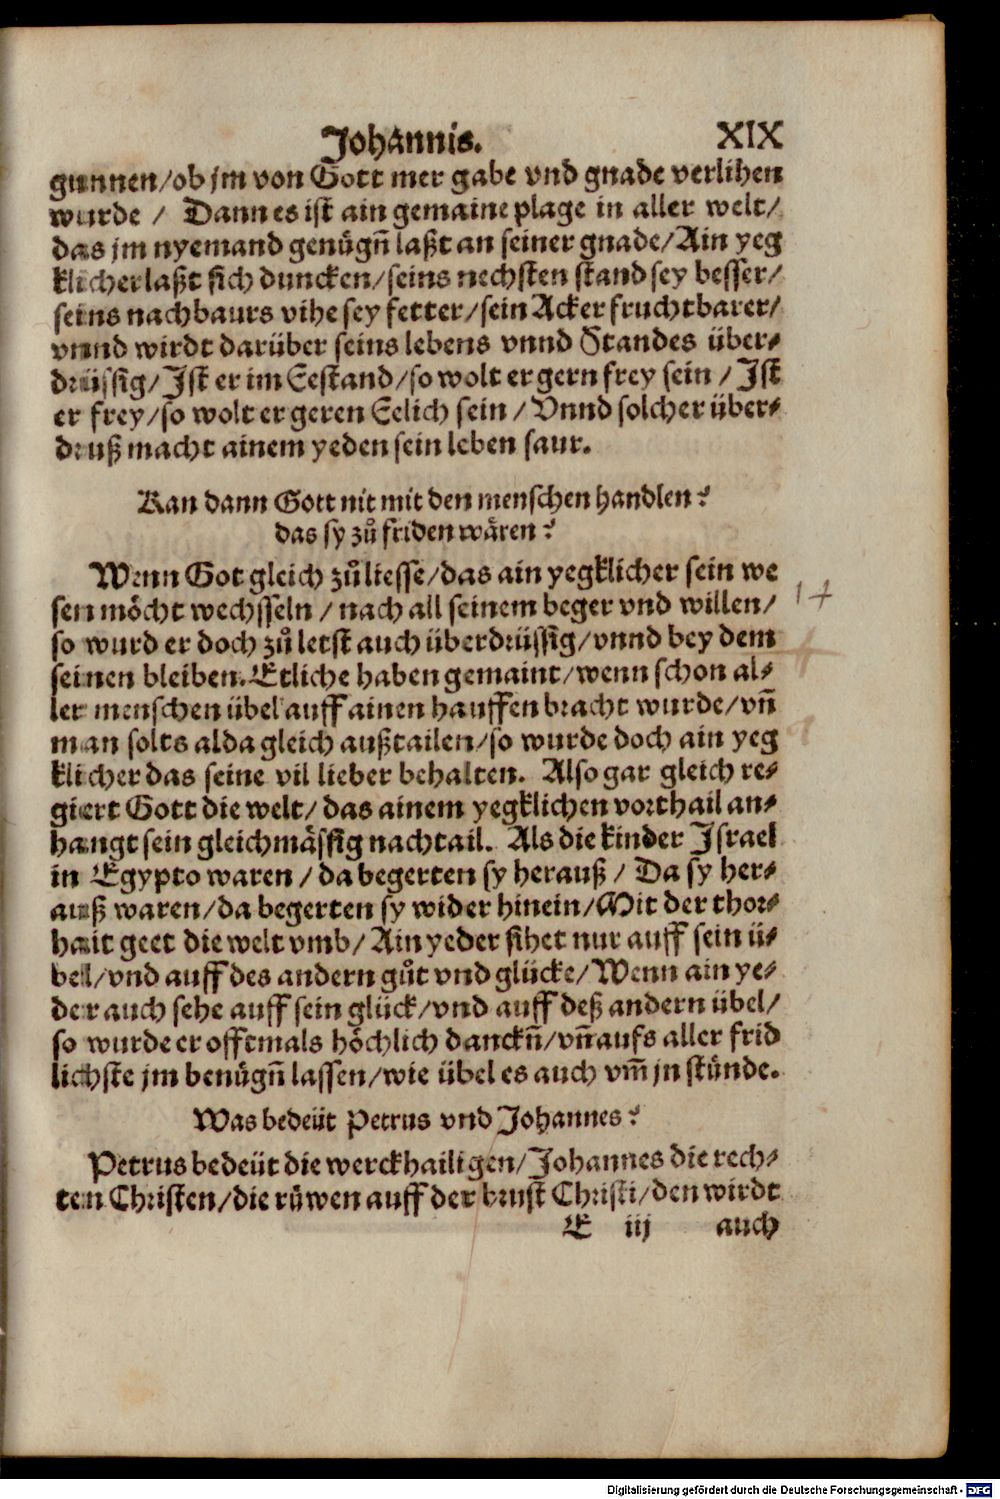 Johannis. XIX
gunnen/ob jm von Gott mer gabe vnd gnade verlihen
wurde / Dann es ist ain gemaine plage in aller welt/
das jm nyemand genügñ laßt an seiner gnade/Ain yeg
klicher laßt sich duncken/seins nechsten stand sey besser/
seins nachbaurs vihe sey fetter/sein Acker fruchtbarer/
vnnd wirdt darüber seins lebens vnnd Standes über-
drüssig/Ist er im Eestand/so wolt er gern frey sein / Ist
er frey/so wolt er geren Eelich sein / Vnnd solcher über-
druß macht ainem yeden sein leben saur.
Kan dann Gott nit mit den menschen handlen?
das sy zů friden wären?
Wenn Got gleich zů liesse/das ain yegklicher sein we
sen möcht wechsseln / nach all seinem beger vnd willen/
so wurd er doch zů letst auch überdrüssig/vnnd bey dem
seinen bleiben. Etliche haben gemaint/wenn schon al-
ler menschen übel auff ainen hauffen bracht wurde/vñ
man solts alda gleich außtailen/so wurde doch ain yeg
klicher das seine vil lieber behalten. Also gar gleich re-
giert Gott die welt/das ainem yegklichen vorthail an-
hangt sein gleichmässig nachtail. Als die kinder Israel
in Egypto waren / da begerten sy herauß / Da sy her-
auß waren/da begerten sy wider hinein/Mit der thor-
hait geet die welt vmb/Ain yeder sihet nur auff sein ü-
bel/vnd auff des andern gůt vnd glücke/Wenn ain ye-
der auch sehe auff sein glück/vnd auff deß andern übel/
so wurde er offtmals höchlich danckñ/vñ aufs aller frid
lichste jm benügñ lassen/wie übel es auch vm̃ jn stünde.
Was bedeüt Petrus vnd Johannes?
Petrus bedeüt die werckhailigen/Johannes die rech-
ten Christen/die růwen auff der brust Christi/den wirdt
E iij auch
14
Digitalisierung gefördert durch die Deutsche Forschungsgemeinschaft - DFG